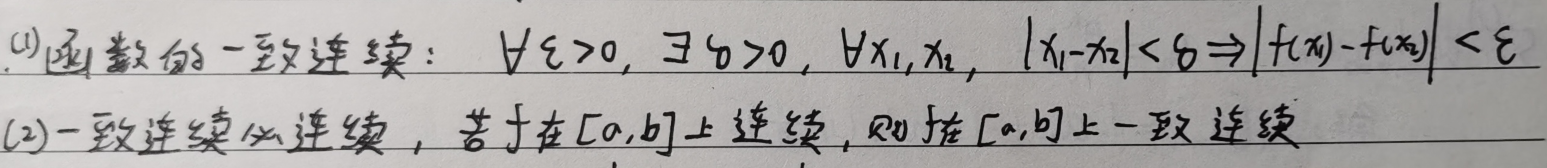 (1)函数的一致连续: ∀ε>0, ∃δ>0, ∀x₁,x₂, |x₁-x₂|<δ⇒|f(x₁)-f(x₂)|<ε
(2)一致连续必连续, 若f在[a,b]上连续, 则f在[a,b]上一致连续